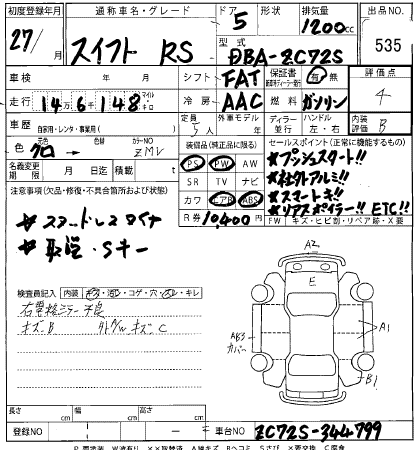 初度登録年月 通称車名・グレード ドア 形状 排気量 出品NO.
27/ 月 スイフト RS 5 1200cc 535
型式 DBA-ZC72S
車検 年 月 シフト FAT 保証書 有 無 評価点
走行 14万6千148 マイル キロ 冷房 AAC 燃料 ガソリン 4
車歴 自家用・レンタ・事業用( ) 定員 5人 外車モデル ディーラー 並行 ハンドル 左・右 内装評価 B
色 クロ 元色 カラーNO ZMV 装備品(純正品に限る) セールスポイント(正常に機能するもの)
名義変更期限 月 日迄 積載 t PS PW AW ★プッシュスタート!!
注意事項(欠品・修復・不具合箇所および状態) SR TV ナビ ★社外アルミ!!
カワ エアB ABS ★スマートキー!!
★スタッドレスタイヤ R券 10,400円 ★リアスポイラー!! ETC!!
★取説・Sキー FW キズ・ヒビ・リペア跡・X要
検査員記入 内装
右電格ミラー不良
キズB 外ゲWキズC
A2
E
A1
AB3
カバー
B1
長さ cm 幅 cm 高さ cm
登録NO － － 車台NO ZC72S-344799